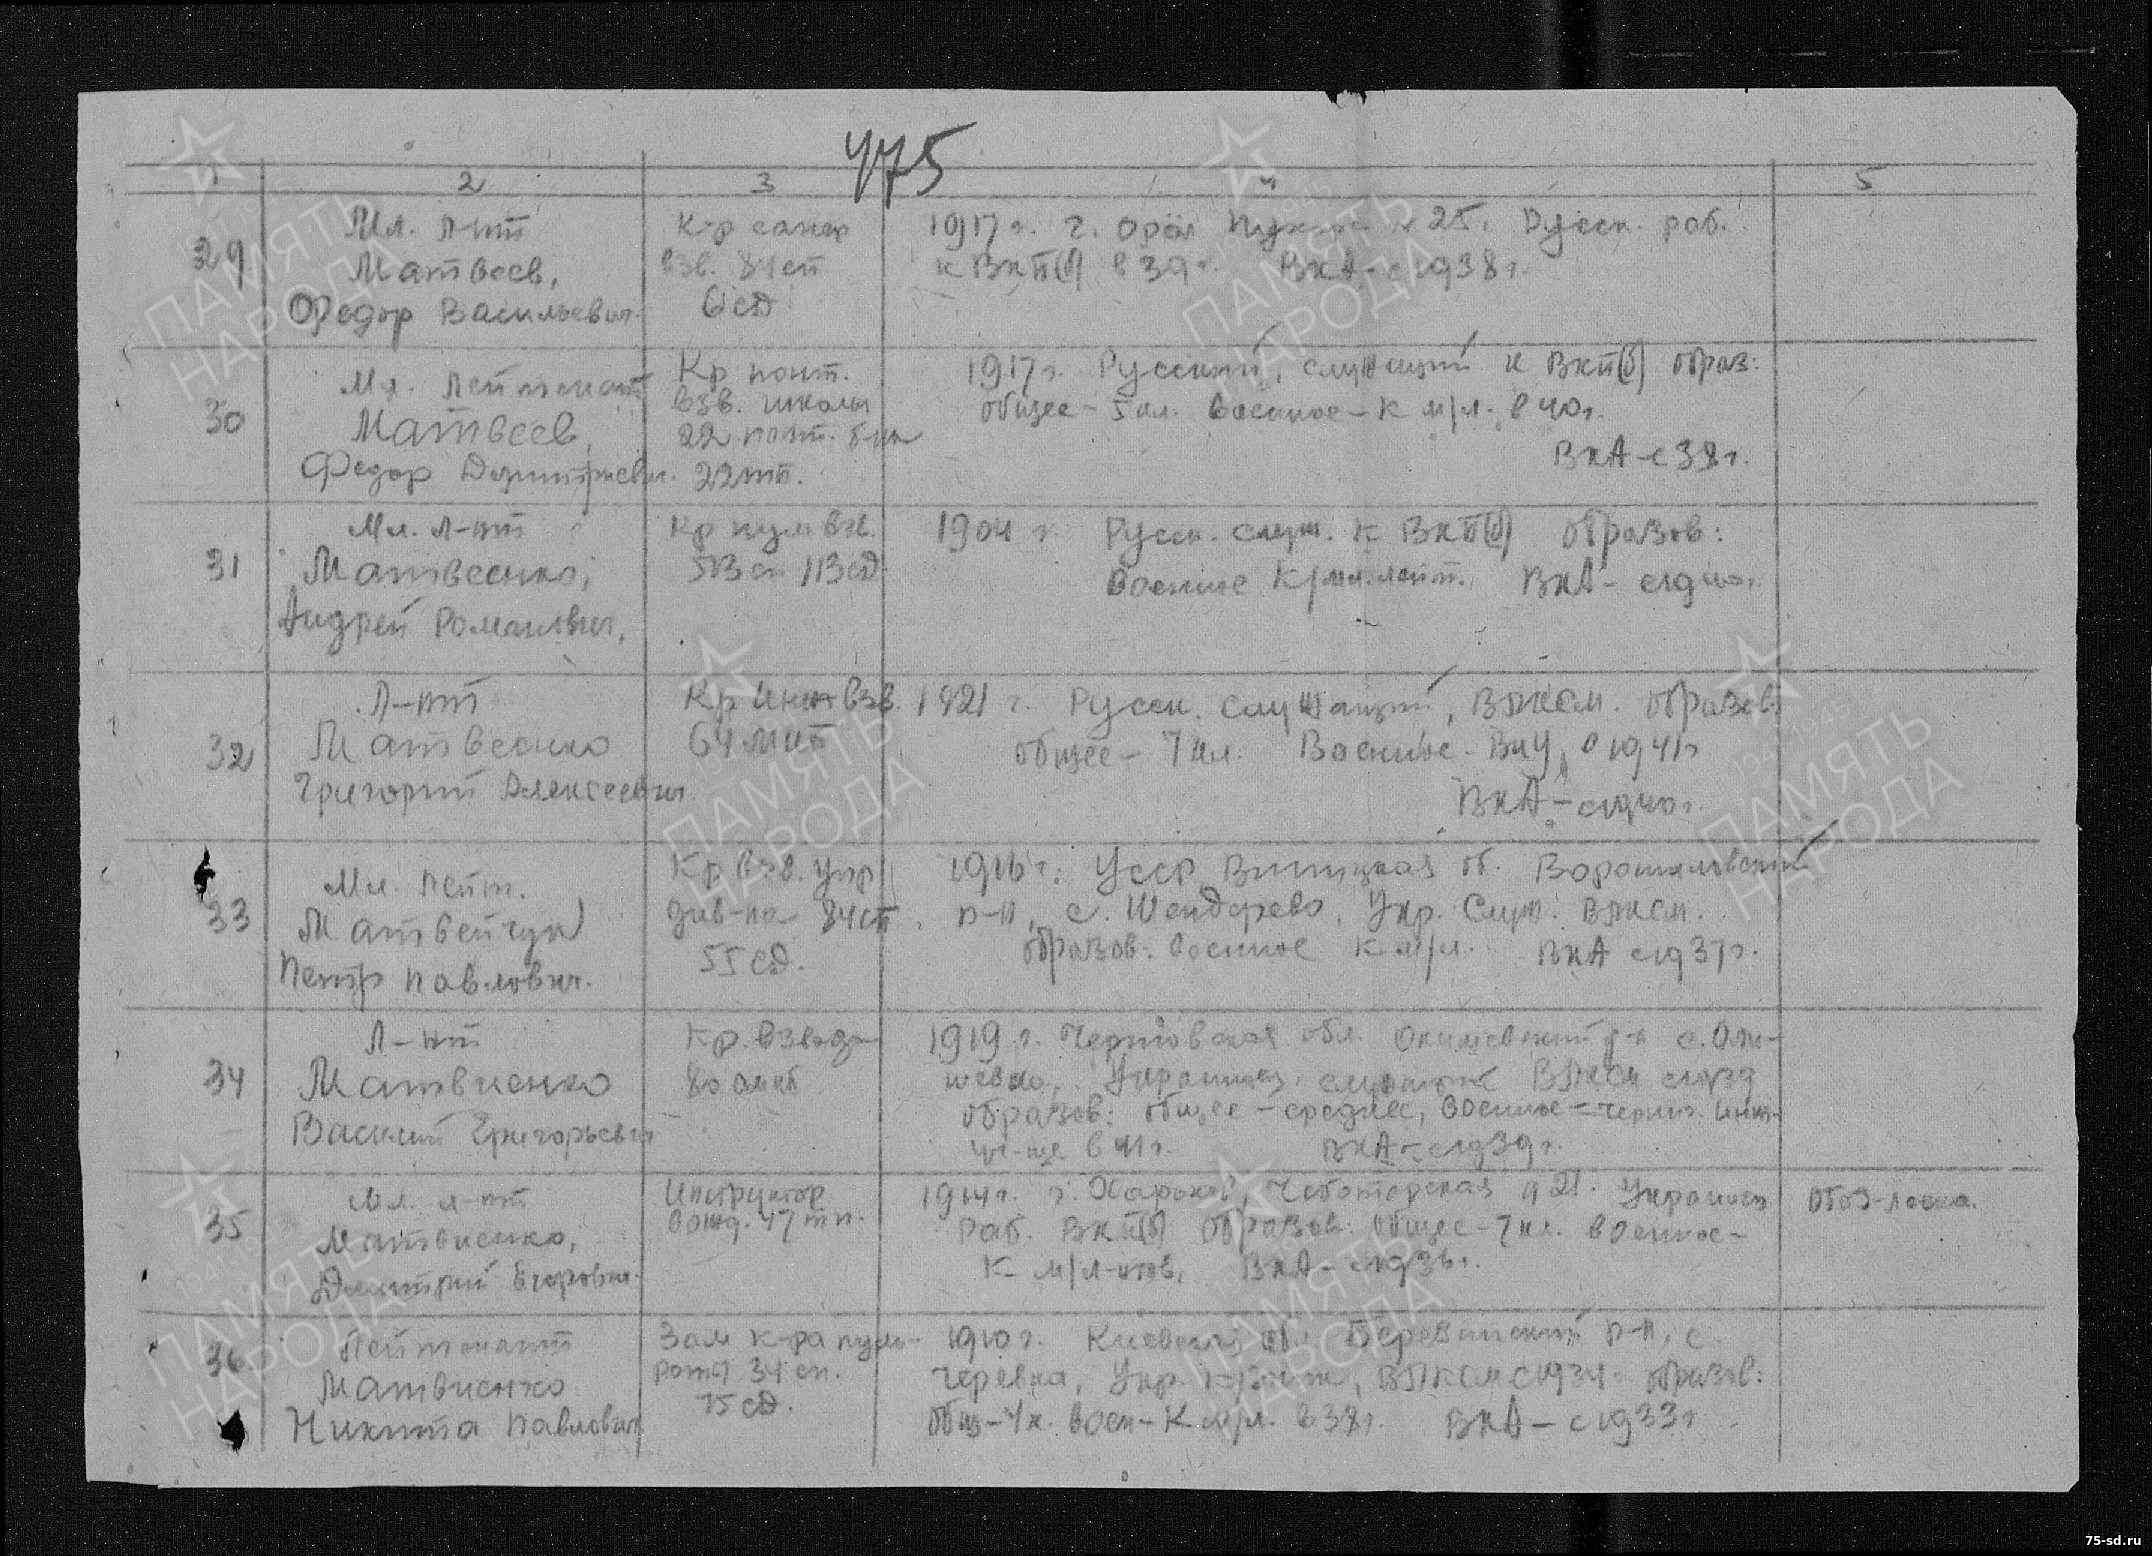 475
1 2 3 4 5
29
Мл. Л-нт
Матвеев,
Федор Васильевич
К-р сапер
взв. 84 сп
6 сд
1917 г. г. Орел № 25. Русск. раб.
к ВКП(б) в 39 г. В КА - с 1938 г.
30
Мл. Лейтенант
Матвеев,
Федор Дмитриевич
Кр понт.
взв. школы
22 понт. б-на
22 тп.
1917 г. Русский, служащий к ВКП(б) образ:
общее - 5 кл. военное - К м/л. в 40 г.
В КА - с 38 г.
31
Мл. Л-нт
Матвеенко,
Андрей Романович,
Кр пул взв.
513 сп 113 сд
1904 г. Русск. служ. к ВКП(б) образов:
военное К/мл. лейт. В КА - с 1940 г.
32
Л-нт
Матвеенко
Григорий Алексеевич
Кр инж взв.
64 мип
1921 г. Русск. служащий, ВЛКСМ. образов.
общее - 7 кл. Военное - ВИУ, в 1941 г
В КА - с 1940 г.
33
Мл. Лейт.
Матвейчук
Петр Павлович.
Кр взв. упр
див-на 84 сп
55 сд.
1916 г. УССР Виницкая об. Ворошиловский
р-н, с. Шендерево. Укр. Служ. ВЛКСМ.
образов. военное К м/л. В КА с 1937 г.
34
Л-нт
Матвиенко
Василий Григорьевич
Кр. взвода
80
1919 г. Черниговская обл. р-н с. Оли-
шевка, Украинец, служащий ВЛКСМ с 1939
образов: общее - среднее, военное - черниг. инж.
уч-ще в 41 г. В КА - с 1939 г.
35
Мл. л-нт
Матвиенко,
Дмитрий Егорович.
Инструктор
вожд. 47 тп.
1914 г. г. Харьков, Чеботарская д 21. Украинец
раб. ВКП(б) образов. общее - 7 кл. военное -
К м/л-нтов, В КА - с 1936 г.
36
Лейтенант
Матвиенко
Никита Павлович
Зам к-ра пуль
роты 34 сп.
75 сд.
1910 г. Киевская об. р-н, с.
Черевка, Укр. ВЛКСМ с 1931 г. образов:
общ - 4 к. воен - К м/л. в 38 г. В КА - с 1933 г
ПАМЯТЬ
НАРОДА
75-sd.ru